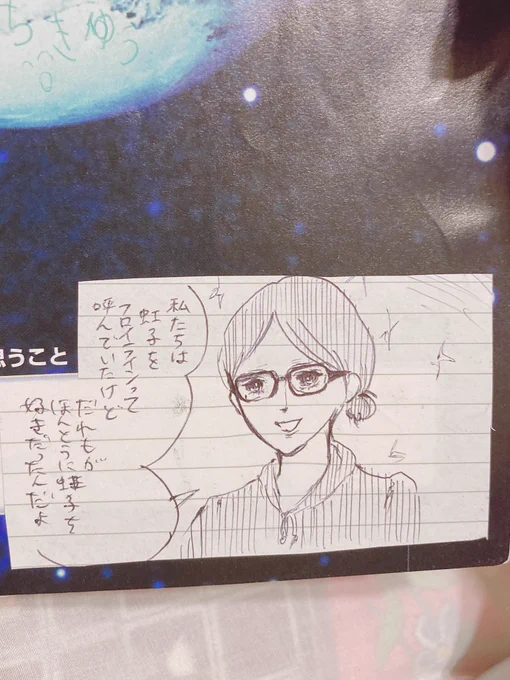 ちきゅう
思うこと
私たちは
虹子を
フロイラインって
呼んでいたけど
だれもが
ほんとうに虹子を
好きだったんだよ